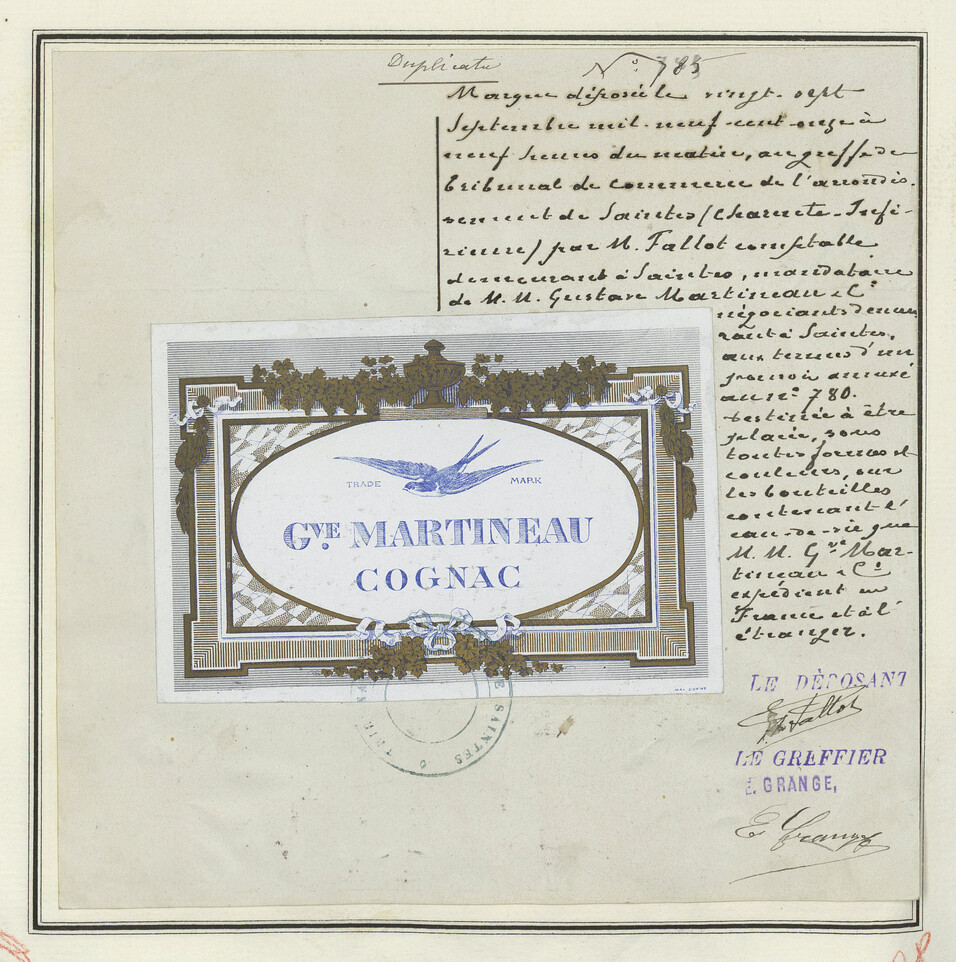 Duplicata
N° 785
Marque déposée le vingt-sept
Septembre mil-neuf-cent-onze à
neuf heures du matin, au greffe du
tribunal de commerce de l'arrondis-
sement de Saintes (Charente-Infé-
rieure) par M. Fallot comptable
demeurant à Saintes, mandataire
de M. M. Gustave Martineau & Cie
négociants demeu-
rant à Saintes,
aux termes d'un
pouvoir annexé
au n° 780.
Destinée à être
placée, sous
toutes formes et
couleurs, sur
les bouteilles
contenant l'
eau-de-vie que
M. M. Gve Mar-
tineau & Cie
expédient en
France et à l'
étranger.
TRADE MARK
GVE. MARTINEAU
COGNAC
LE DÉPOSANT
Fallot
LE GREFFIER
E. GRANGE,
E Grange
DE SAINTES